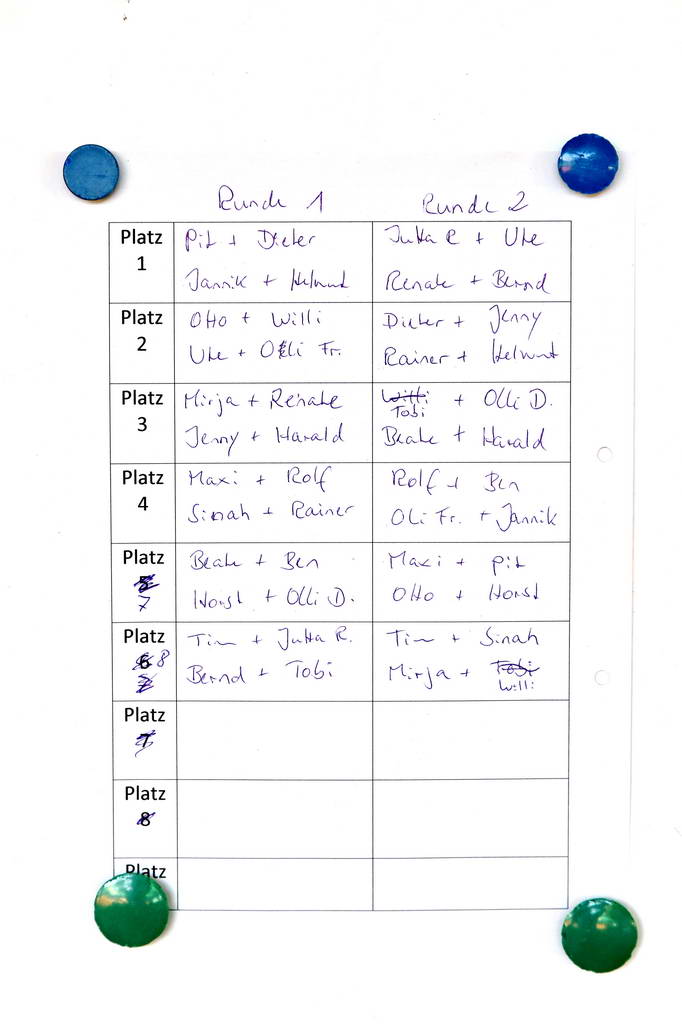 Runde 1 Runde 2
Platz 1
Pit + Dieter
Jannik + Helmut
Jutta R + Ute
Renate + Bernd
Platz 2
Otto + Willi
Ute + Olli Fr.
Dieter + Jenny
Rainer + Helmut
Platz 3
Mirja + Renate
Jenny + Harald
Willi + Olli D.
Tobi
Beate + Harald
Platz 4
Maxi + Rolf
Sinah + Rainer
Rolf + Ben
Oli Fr. + Jannik
Platz 5
7
Beate + Ben
Horst + Olli D.
Maxi + Pit
Otto + Horst
Platz 6 8
Tim + Jutta R.
Bernd + Tobi
Tim + Sinah
Mirja + Tobi
Willi
Platz
7
Platz
8
Platz